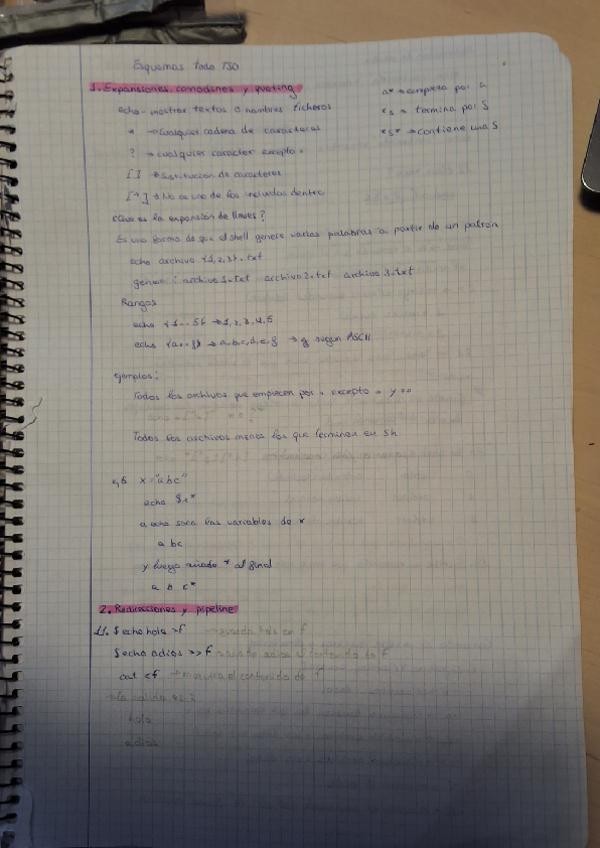 Esquemas Todo TSO
1. Expansiones, comodines y quoting
echo - mostrar textos o nombres ficheros
* → Cualquier cadena de caracteres
? → cualquier caracter excepto .
[ ] → Sustitucion de caracteres
[^] → No es uno de los incluidos dentro
a* → empieza por a
*s → termina por S
*s* → contiene una S
¿Que es la expansión de llaves?
Es una forma de que el shell genere varias palabras a partir de un patrón
echo archivo {1,2,3}.txt
genera: archivo1.txt archivo2.txt archivo3.txt
Rangos
echo {1..5} → 1,2,3,4,5
echo {a..g} → a,b,c,d,e,g → g según ASCII
ejemplos:
Todos los archivos que empiecen por . excepto . y ..
Todos los archivos menos los que terminen en sh
x="abc"
echo $x*
a echo saca las variables de x
a bc
y luego añade * al final
a b c*
2. Redirecciones y pipeline
11. $ echo hola >f → guarda hola en f
$ echo adios >> f añade adios al contenido de f
cat <f → muestra el contenido de f
la salida es:
hola
adios